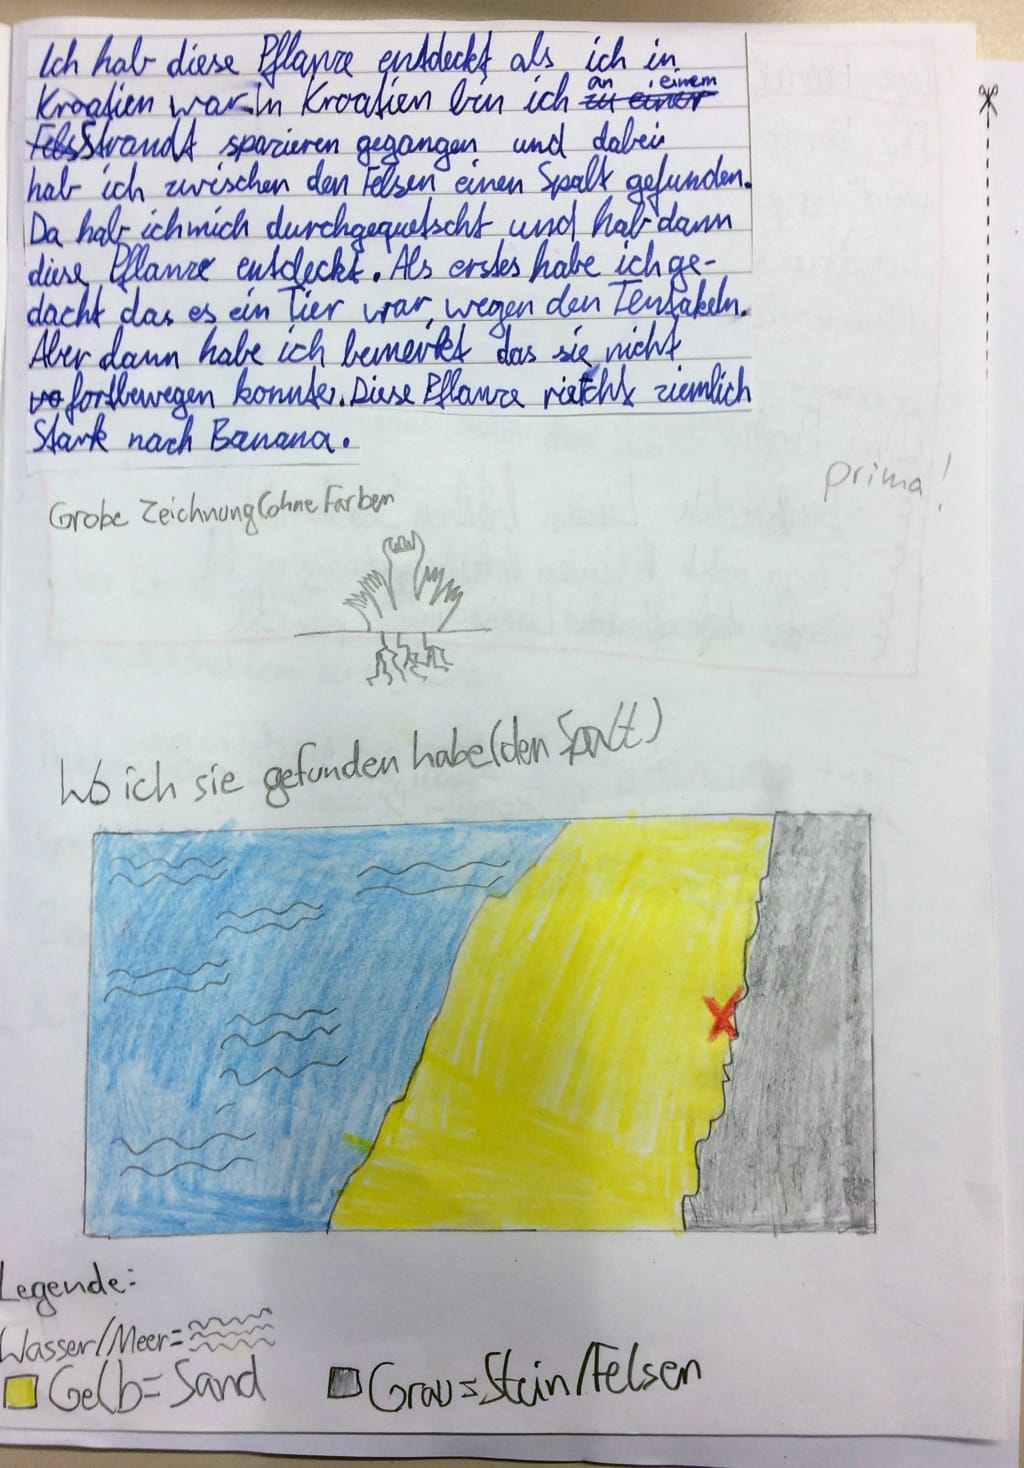 Ich hab diese Pflanze entdeckt als ich in
Kroatien war. In Kroatien bin ich an einem
Strandt spazieren gegangen und dabei
hab ich zwischen den Felsen einen Spalt gefunden.
Da hab ich mich durchgequetscht und hab dann
diese Pflanze entdeckt. Als erstes habe ich ge-
dacht das es ein Tier war, wegen den Tentakeln.
Aber dann habe ich bemerkt das sie nicht
fortbewegen konnte. Diese Pflanze riecht ziemlich
Stark nach Banana.
prima!
Grobe Zeichnung (ohne Farben
Wo ich sie gefunden habe (den Spalt)
Legende:
Wasser/Meer=
Gelb= Sand
Grau= Stein/Felsen